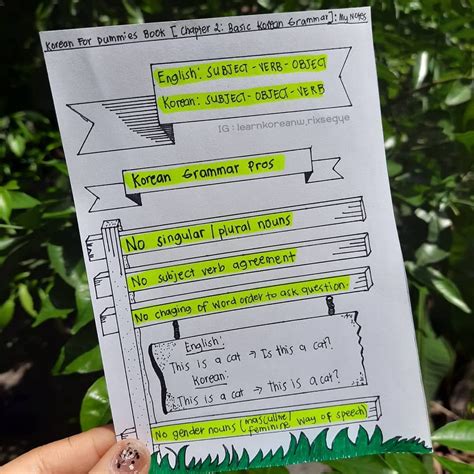 Korean For Dummies Book [Chapter 2: Basic Korean Grammar]: My Notes
English: SUBJECT - VERB - OBJECT
Korean: SUBJECT - OBJECT - VERB
IG : learnkoreanw_rixseque
Korean Grammar Pros
No singular / plural nouns
No subject verb agreement
No chaging of word order to ask question.
English:
This is a cat → Is this a cat?
Korean:
This is a cat → this is a cat?
No gender nouns (masculine/feminine way of speech)